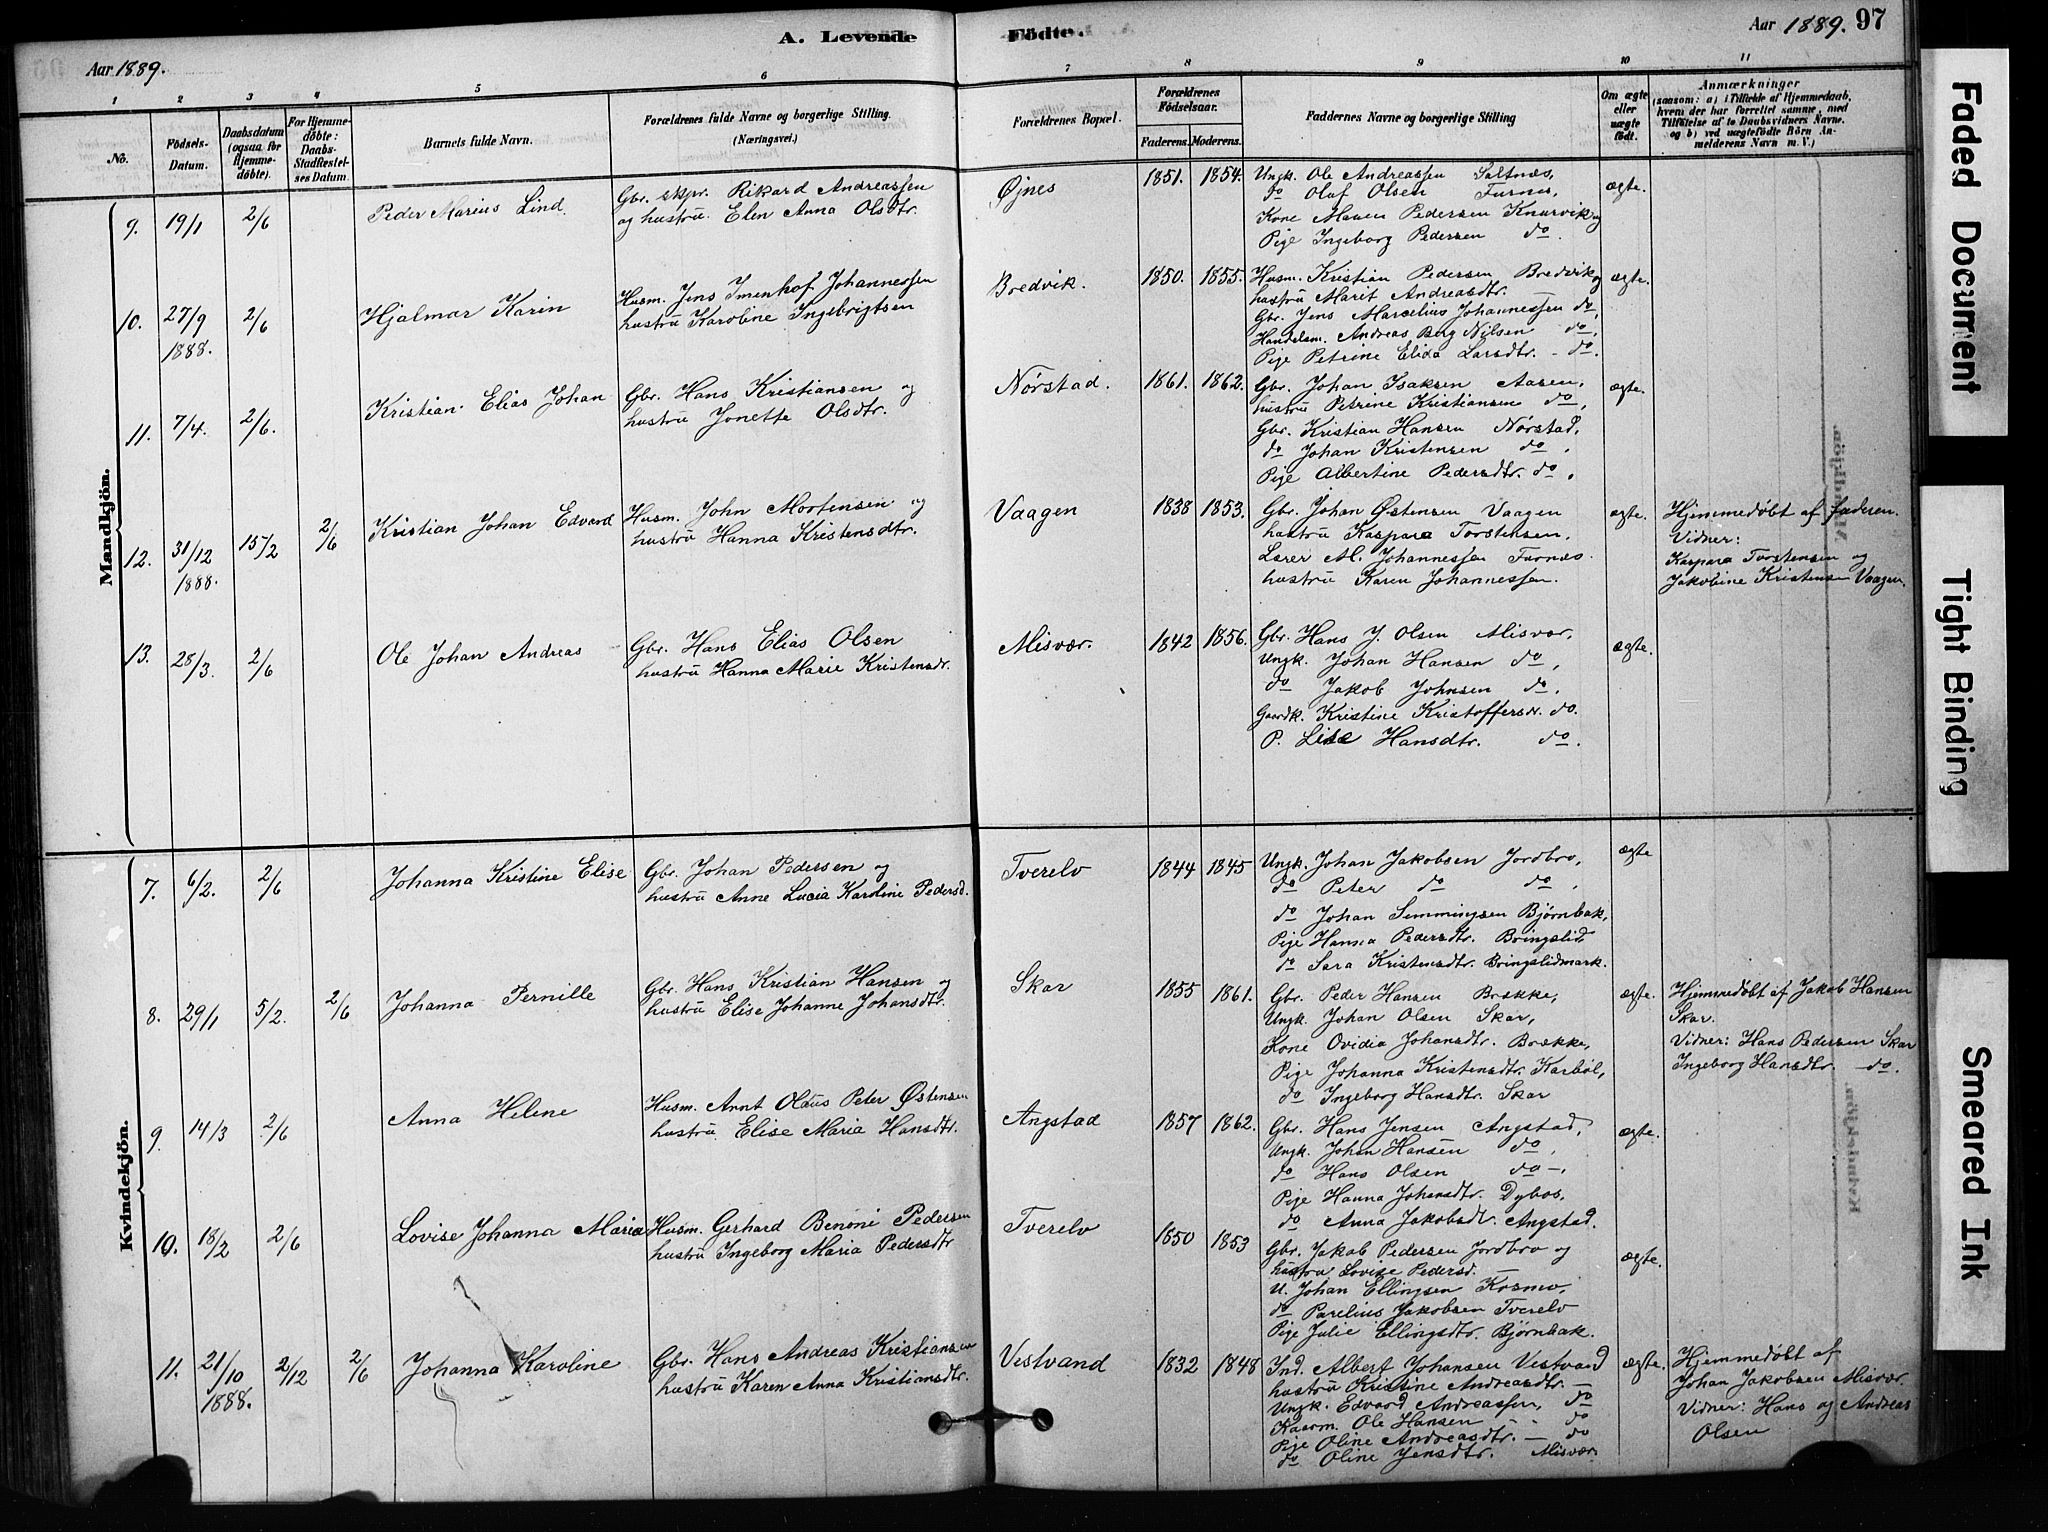 A. Levende Födte.
Aar 1889.
Aar 1889. 97
1 2 3 4 5 6 7 8 9 10 11
No.
Födsels-Datum.
Daabsdatum (ogsaa for Hjemmedöbte).
For Hjemmedöbte: Daabs-Stadfæstelses Datum.
Barnets fulde Navn.
Forældrenes fulde Navne og borgerlige Stilling.
(Næringsvei.)
Forældrenes Bopæl.
Forældrenes Födselsaar.
Faderens. Moderens.
Faddernes Navne og borgerlige Stilling
Om ægte eller uægte födt.
Anmærkninger
(saasom: a) i Tilfælde af Hjemmedaab, hvem der har forrettet samme, med Tilföielse af to Daabsvidners Navne, og b) ved uægtefödte Börn Anmelderens Navn m. V.)
Mandkjön.
9. 19/1 2/6 Peder Marius Lind.
Gbr. skpr. Rikard Andreassen
og hustru Elen Anna Olsdtr.
Øjnes 1851. 1854.
Ungk. Ole Andreassen Saltnæs,
do Oluf Olsen Furnes,
Kone Maren Pedersen Knarvik og
Pige Ingeborg Pedersen do.
ægte.
10. 27/9 1888. 2/6 Hjalmar Karin
Husm. Jens Imenhof Johannessen
hustru Karoline Ingebrigtsen
Bredvik. 1850. 1855.
Husm. Kristian Pedersen Bredvik og
hustru Marit Andreasdtr.
Gbr. Jens Marcelius Johannessen do,
Handelsm. Andreas Berg Nilsen do,
Pige Petrine Elida Larsdtr. - do.
ægte.
11. 7/4. 2/6. Kristian Elias Johan
Gbr. Hans Kristiansen og
hustru Jonette Olsdtr.
Nørstad. 1861. 1862.
Gbr. Johan Isaksen Aasen,
hustru Petrine Kristiansen do,
Gbr. Kristian Hansen Nørstad,
do Johan Kristensen do,
Pige Albertine Pedersdtr. do,
ægte.
12. 31/12 1888. 15/2 2/6 Kristian Johan Edvard
Husm. John Mortensen og
hustru Hanna Kristensdtr.
Vaagen 1838 1853.
Gbr. Johan Østensen Vaagen
hustru Kaspara Torstensen,
Lærer M. Johannessen Furnæs
hustru Karen Johannessen.
ægte.
Hjemmedøbt af faderen.
Vidner:
Kaspara Torstensen og
Jakobine Kristensen Vaagen.
13. 28/3. 2/6 Ole Johan Andreas
Gbr. Hans Elias Olsen
hustru Hanna Marie Kristensdr.
Misvær. 1842 1856.
Gbr. Hans J. Olsen Misvær,
Ungk. Johan Hansen do,
do Jakob Johnsen do.
Gaardk. Kristine Kristoffersdr. do.
P. Lise Hansdtr. do.
ægte.
Kvindekjön.
7. 6/2. 2/6 Johanna Kristine Elise
Gbr. Johan Pedersen og
hustru Anne Lucia Karoline Pedersd.
Tverelv 1844 1845
Ungk. Johan Jakobsen Jordbro,
do Peter do do,
do Johan Semmingsen Bjørnbak,
Pige Hanna Pedersdtr. Bringslid
do Sara Kristensdtr. Bringslidmark.
ægte
8. 29/1 5/2. 2/6 Johanna Pernille
Gbr. Hans Kristian Hansen og
hustru Elise Johanne Johansdtr.
Skar 1855 1861.
Gbr. Peder Hansen Brække,
Ungk. Johan Olsen Skar,
Kone Ovidia Johansdtr. Brække,
Pige Johanna Kristensdtr. Karbøl,
do Ingeborg Hansdtr. Skar
ægte.
Hjemmedøbt af Jakob Hansen
Skar.
Vidner: Hans Pedersen Skar
Ingeborg Hansdtr. - do.
9. 14/3 2/6 Anna Helene
Husm. Annt Olaus Peter Østensen
hustru Elise Maria Hansdtr.
Angstad 1857 1862.
Gbr. Hans Jensen Angstad,
Ungk. Johan Hansen do,
do Hans Olsen do -,
Pige Hanna Johansdtr. Dybos,
do Anna Jakobsdr. Angstad.
ægte.
10. 18/2 2/6 Lovise Johanna Maria
Husm. Gerhard Benoni Pedersen
hustru Ingeborg Maria Pedersdtr
Tverelv 1850 1853
Gbr. Jakob Pedersen Jordbro og
hustru Lovise Pedersd.
U. Johan Ellingsen Kosmo,
do Parelius Jakobsen Tverelv
Pige Julie Ellingsdtr. Bjørnbak.
ægte.
11. 21/10 1888. 2/12 2/6 Johanna Karoline
Gbr. Hans Andreas Kristiansen
hustru Karen Anna Kristiansdtr.
Vestvand 1832 1848
Ind. Albert Johansen Vestvand
hustru Kristine Andreasdtr. -
Ungk. Edvard Andreassen, do
Kaarm. Ole Hansen - - do
Pige Oline Andreasdtr. - do
do Oline Jensdtr. Misvær.
ægte.
Hjemmedøbt af
Johan Jakobsen Misvær.
Vidner: Hans og Andreas
Olsen
Faded Document
Tight Binding
Smeared Ink